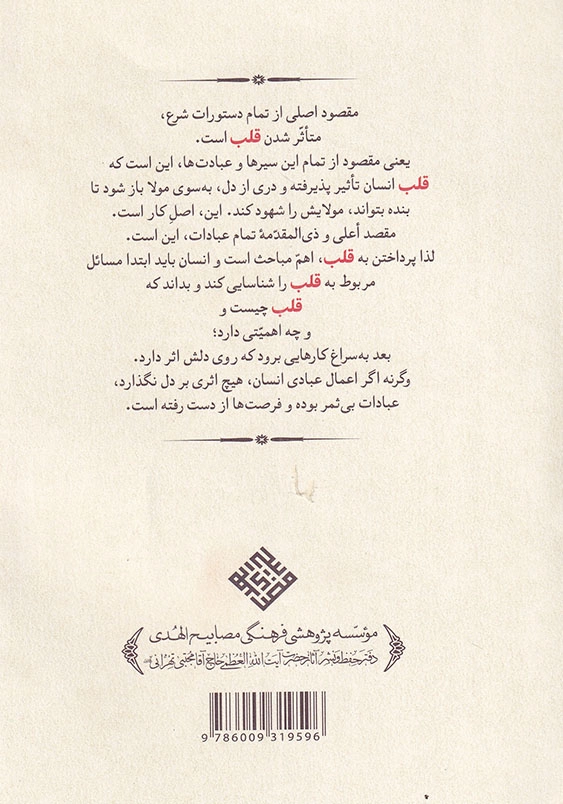 مقصود اصلی از تمام دستورات شرع،
متأثّر شدن قلب است.
یعنی مقصود از تمام این سیرها و عبادت‌ها، این است که
قلب انسان تأثیر پذیرفته و دری از دل، به‌سوی مولا باز شود تا
بنده بتواند، مولایش را شهود کند. این، اصلِ کار است.
مقصد أعلی و ذی‌المقدّمهٔ تمام عبادات، این است.
لذا پرداختن به قلب، اهمّ مباحث است و انسان باید ابتدا مسائل
مربوط به قلب را شناسایی کند و بداند که
قلب چیست و
و چه اهمیّتی دارد؛
بعد به‌سراغ کارهایی برود که روی دلش اثر دارد.
وگرنه اگر اعمال عبادی انسان، هیچ اثری بر دل نگذارد،
عبادات بی‌ثمر بوده و فرصت‌ها از دست رفته است.
مؤسّسه پژوهشی فرهنگی مصابیح الهُدی
دفتر حفظ و نشر آثار حضرت آیت الله العظمی حاج آقا مجتبی تهرانی
9 786009 319596